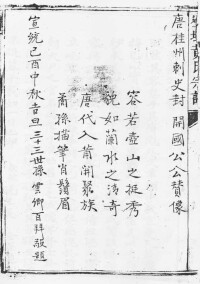 唐桂州刺史封 開國公公贊像
容若壺山之挺秀
貌如蘭水之清奇
唐代入莆開聚族
裔孫描筆肖鬚眉
宣統己酉中秋吉旦三十三世孫雲卿百拜敬題